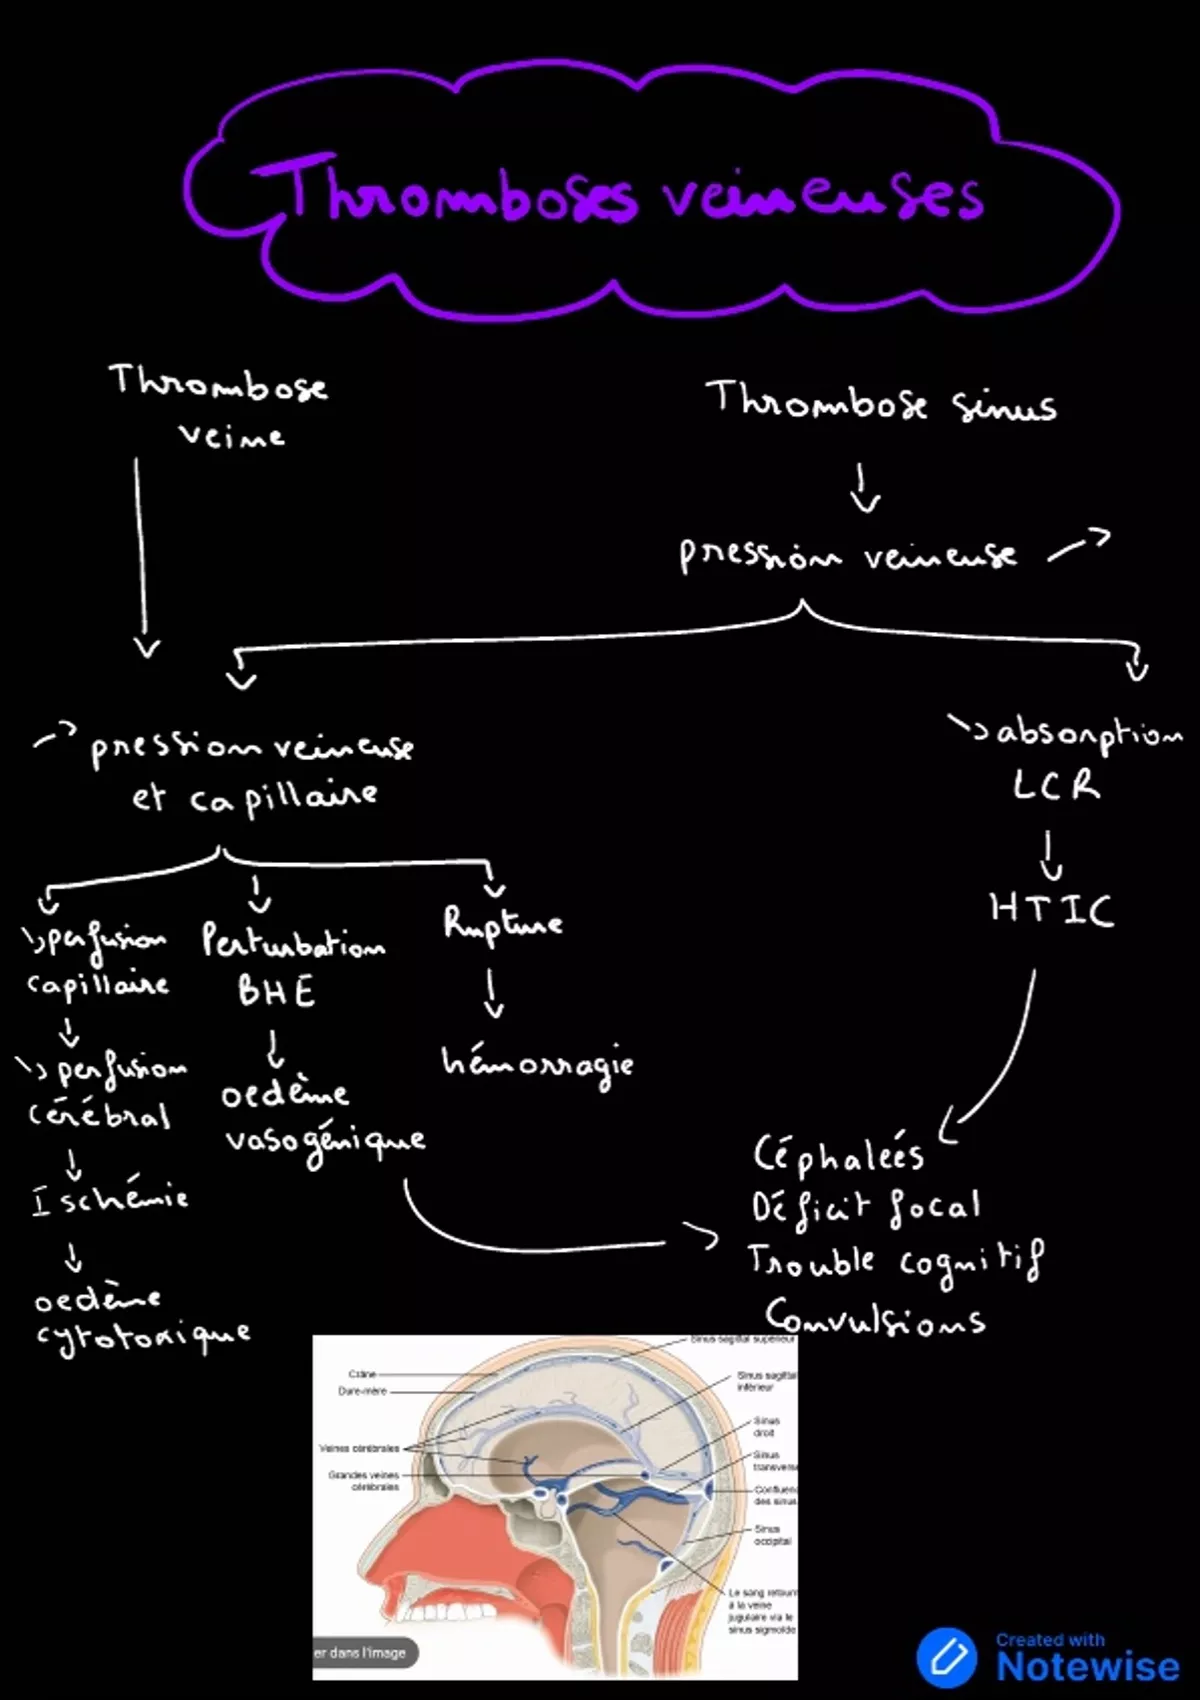 Thromboses veineuses
Thrombose
veine
Thrombose sinus
pression veineuse
pression veineuse
et capillaire
absorption
LCR
HTIC
perfusion
capillaire
perfusion
cérébral
Ischémie
oedème
cytotoxique
Perturbation
BHE
oedème
vasogénique
Rupture
hémorragie
Céphaleés
Déficit focal
Trouble cognitif
Convulsions
Sinus sagittal supérieur
Crâne
Dure-mère
Veines cérébrales
Grandes veines
cérébrales
Sinus sagittal
inférieur
Sinus
droit
Sinus
transverse
Confluen
des sinus
Sinus
occipital
Le sang retourn
à la veine
jugulaire via le
sinus sigmoïde
er dans l'image
Created with
Notewise